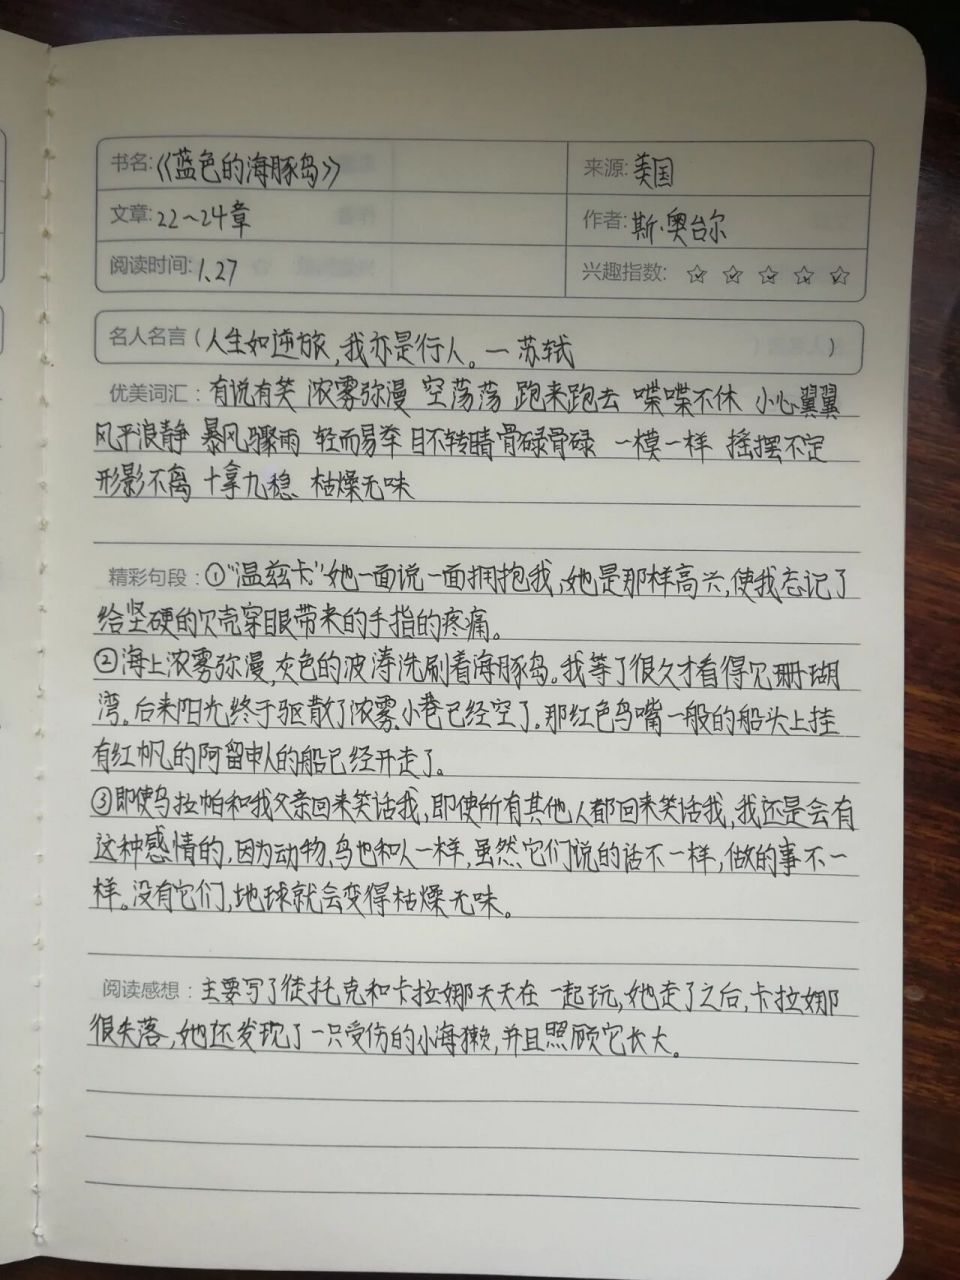 书名:《蓝色的海豚岛》 来源:美国
文章:22～24章 作者:斯·奥台尔
阅读时间:1.27 兴趣指数:☆☆☆☆☆
名人名言(人生如逆旅,我亦是行人。—苏轼)
优美词汇:有说有笑 浓雾弥漫 空荡荡 跑来跑去 喋喋不休 小心翼翼
风平浪静 暴风骤雨 轻而易举 目不转睛 骨碌骨碌 一模一样 摇摆不定
形影不离 十拿九稳 枯燥无味
精彩句段:①“温兹卡”她一面说一面拥抱我,她是那样高兴,使我忘记了
给坚硬的贝壳穿眼带来的手指的疼痛。
②海上浓雾弥漫,灰色的波涛洗刷着海豚岛。我等了很久才看得见珊瑚
湾。后来阳光终于驱散了浓雾.小巷已经空了.那红色鸟嘴一般的船头上挂
有红帆的阿留申人的船已经开走了。
③即使乌拉帕和我父亲回来笑话我,即使所有其他人都回来笑话我,我还是会有
这种感情的.因为动物、鸟也和人一样,虽然它们说的话不一样,做的事不一
样。没有它们,地球就会变得枯燥无味。
阅读感想:主要写了徒托克和卡拉娜天天在一起玩,她走了之后,卡拉娜
很失落,她还发现了一只受伤的小海獭,并且照顾它长大。